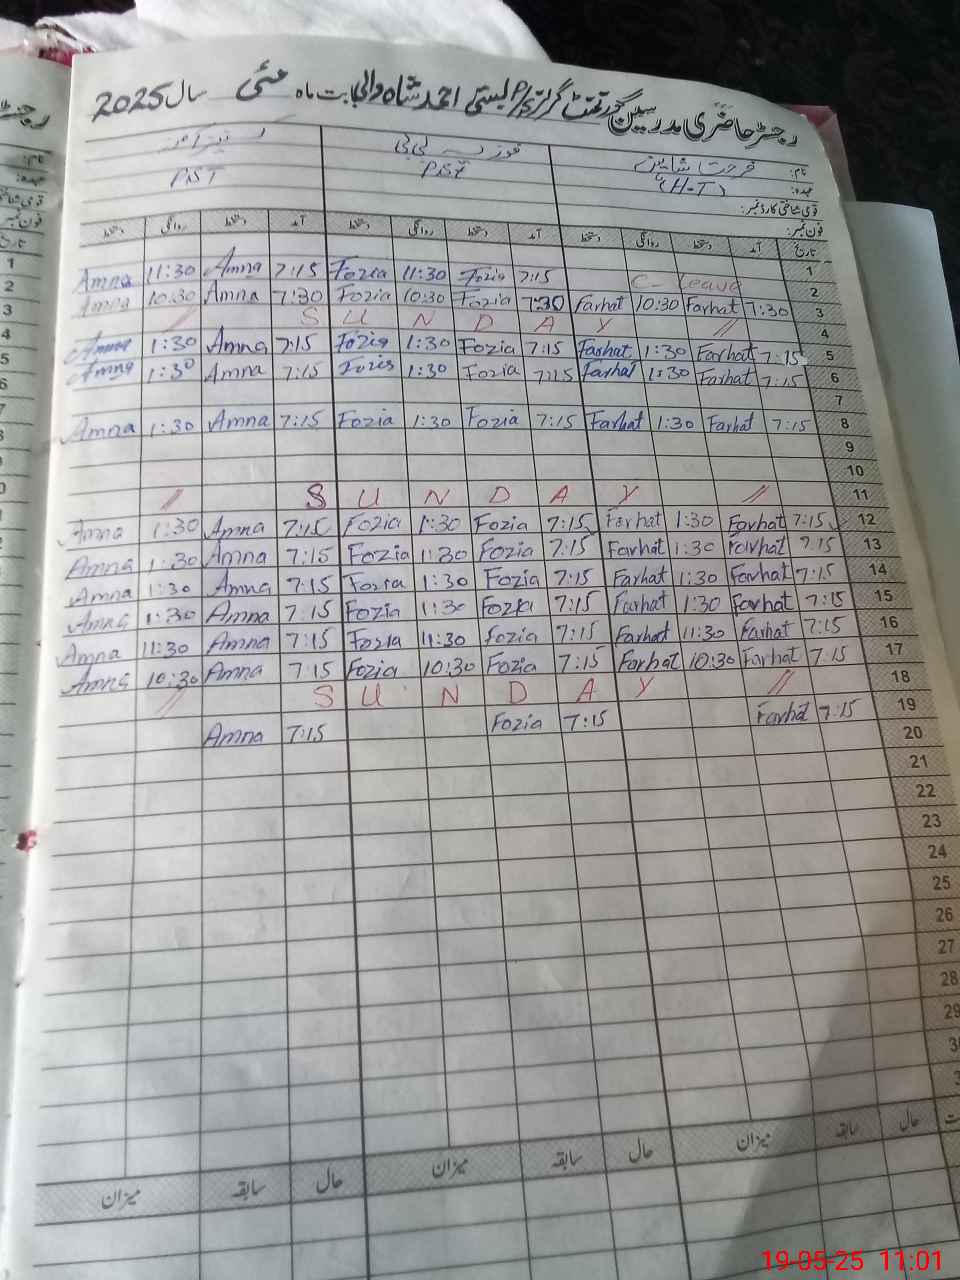 رجسٹر حاضری مدرسین گورنمنٹ گرلز P/S بستی احمد شاہ والی بابت ماہ مئی سال 2025
نام: فرحت شاہین فوزیہ بی بی
عہدہ: (H-T) PST PST
قومی شناختی کارڈ نمبر:
فون نمبر:
تاریخ آمد دستخط روانگی دستخط آمد دستخط روانگی دستخط آمد دستخط روانگی دستخط
1
Amna 11:30 Amna 7:15 Fozia 11:30 Fozia 7:15 C- Leave 2
Amna 10:30 Amna 7:30 Fozia 10:30 Fozia 7:30 Farhat 10:30 Farhat 7:30 3
// S U N D A Y // 4
Amna 1:30 Amna 7:15 Fozia 1:30 Fozia 7:15 Farhat 1:30 Farhat 7:15 5
Amna 1:30 Amna 7:15 Fozia 1:30 Fozia 7:15 Farhat 1:30 Farhat 7:15 6
7
Amna 1:30 Amna 7:15 Fozia 1:30 Fozia 7:15 Farhat 1:30 Farhat 7:15 8
9
10
// S U N D A Y // 11
Amna 1:30 Amna 7:15 Fozia 1:30 Fozia 7:15 Farhat 1:30 Farhat 7:15 12
Amna 1:30 Amna 7:15 Fozia 1:30 Fozia 7:15 Farhat 1:30 Farhat 7:15 13
Amna 1:30 Amna 7:15 Fozia 1:30 Fozia 7:15 Farhat 1:30 Farhat 7:15 14
Amna 1:30 Amna 7:15 Fozia 1:30 Fozia 7:15 Farhat 1:30 Farhat 7:15 15
Amna 11:30 Amna 7:15 Fozia 11:30 Fozia 7:15 Farhat 11:30 Farhat 7:15 16
Amna 10:30 Amna 7:15 Fozia 10:30 Fozia 7:15 Farhat 10:30 Farhat 7:15 17
// S U N D A Y // 18
Amna 7:15 Fozia 7:15 Farhat 7:15 19
20
21
22
23
24
25
26
27
28
29
میزان سابقہ حال میزان سابقہ حال میزان سابقہ حال
19-05-25 11:01